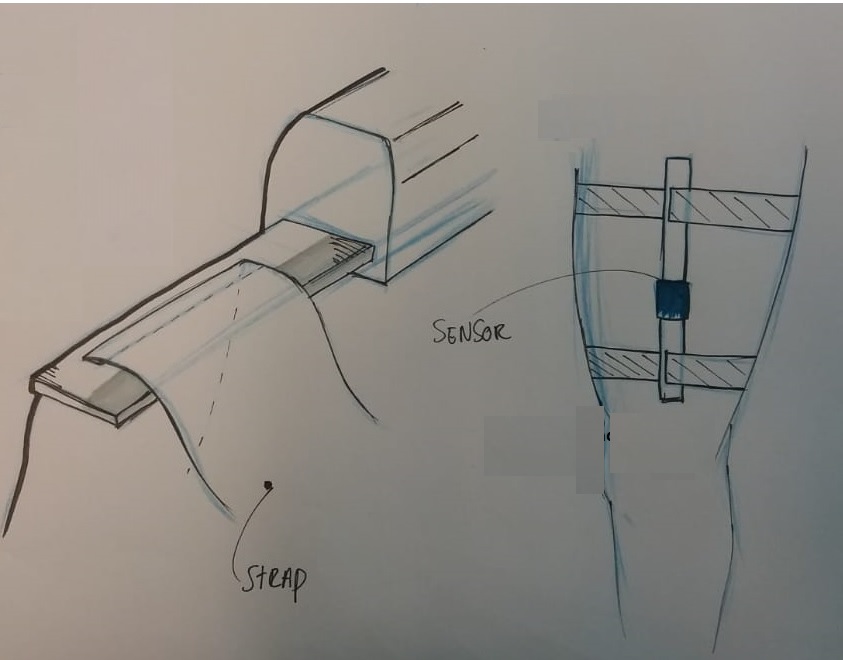 SENSOR
STRAP